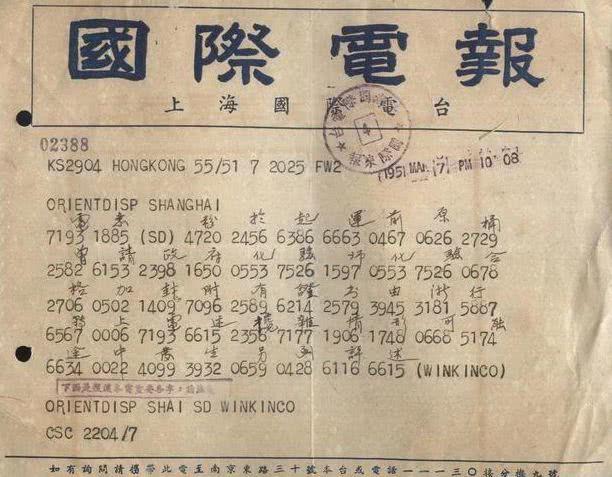 國際電報
上海國際電台
02388
KS2904 HONGKONG 55/51 7 2025 FW2
1951 MAR 7 PM 10 08
ORIENTDISP SHANGHAI
電悉 粉於起運前原桶
7193 1885 (SD) 4720 2456 6386 6663 0467 0626 2729
曾請政府化驗師化驗合
2582 6153 2398 1650 0553 7526 1597 0553 7526 0678
格加封附有證書由 行
2706 0502 1409 7096 2589 6214 2579 3945 3181 5887
轉上電述 雜情形可能
6567 0006 7193 6615 2358 7177 1906 1748 0668 5174
途中發生另函詳述
6634 0022 4099 3932 0659 0428 6116 6615 (WINKINCO)
下面是複讀本電重要各字,請
ORIENTDISP SHAI SD WINKINCO
CSC 2204/7
如有詢問請攜帶此電至南京東路三十號本台或電話一一一三〇接分機九號